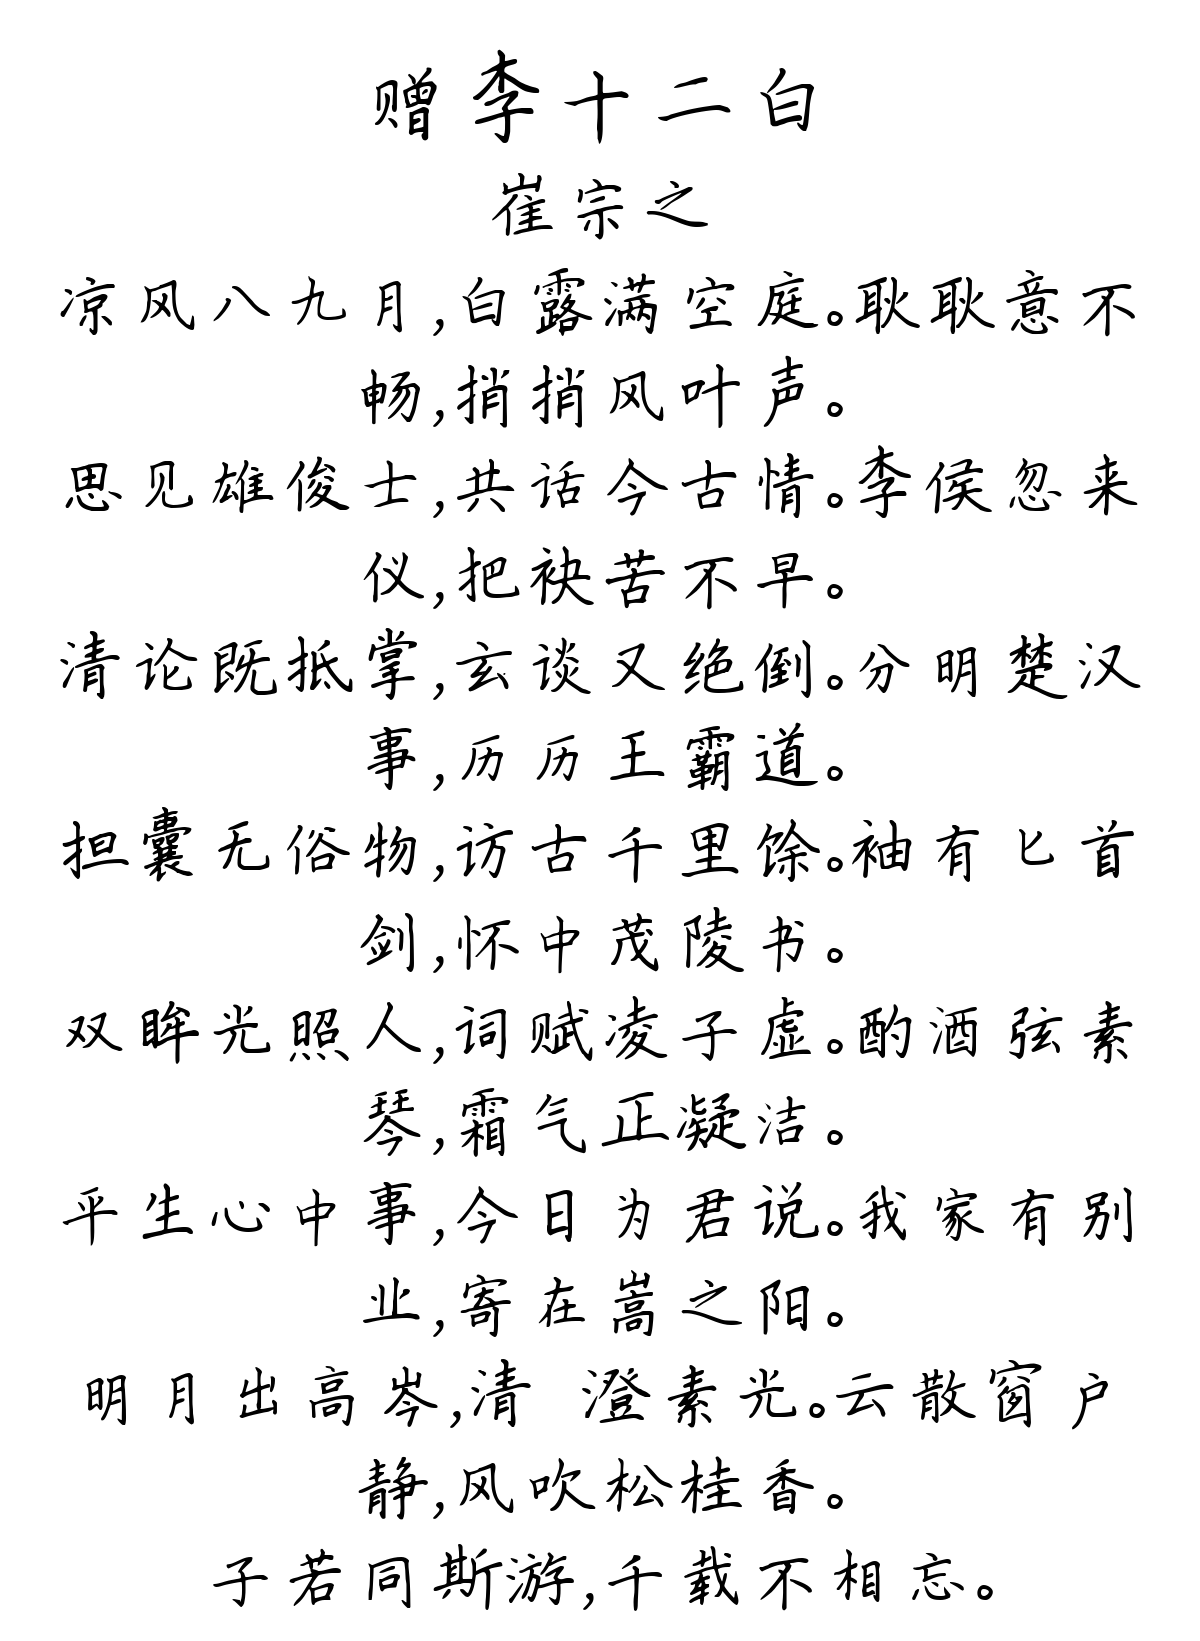 赠李十二白
崔宗之
凉风八九月,白露满空庭。耿耿意不
畅,捎捎风叶声。
思见雄俊士,共话今古情。李侯忽来
仪,把袂苦不早。
清论既抵掌,玄谈又绝倒。分明楚汉
事,历历王霸道。
担囊无俗物,访古千里馀。袖有匕首
剑,怀中茂陵书。
双眸光照人,词赋凌子虚。酌酒弦素
琴,霜气正凝洁。
平生心中事,今日为君说。我家有别
业,寄在嵩之阳。
明月出高岑,清 澄素光。云散窗户
静,风吹松桂香。
子若同斯游,千载不相忘。